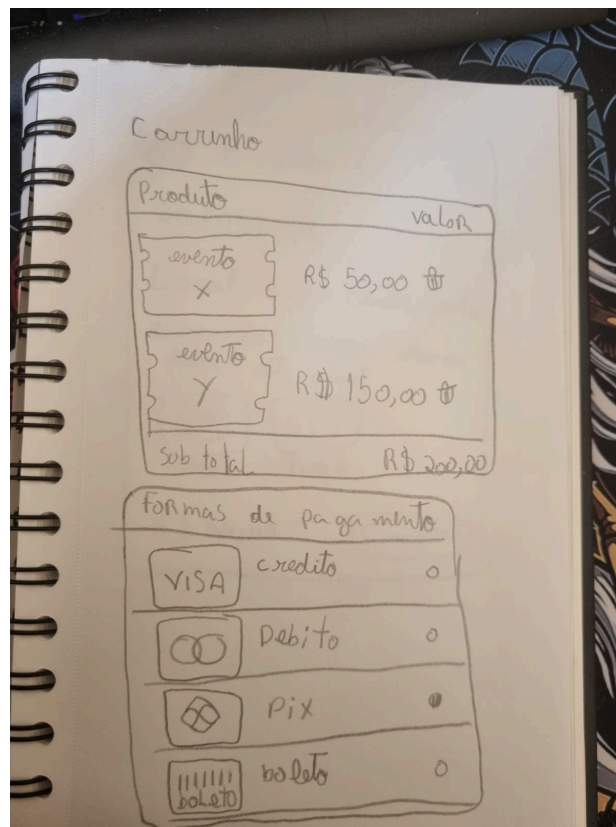 Carrinho
Produto valor
evento
X
R$ 50,00
evento
Y
R$ 150,00
Sub total R$ 200,00
Formas de pagamento
VISA credito
Debito
Pix
boleto
boleto